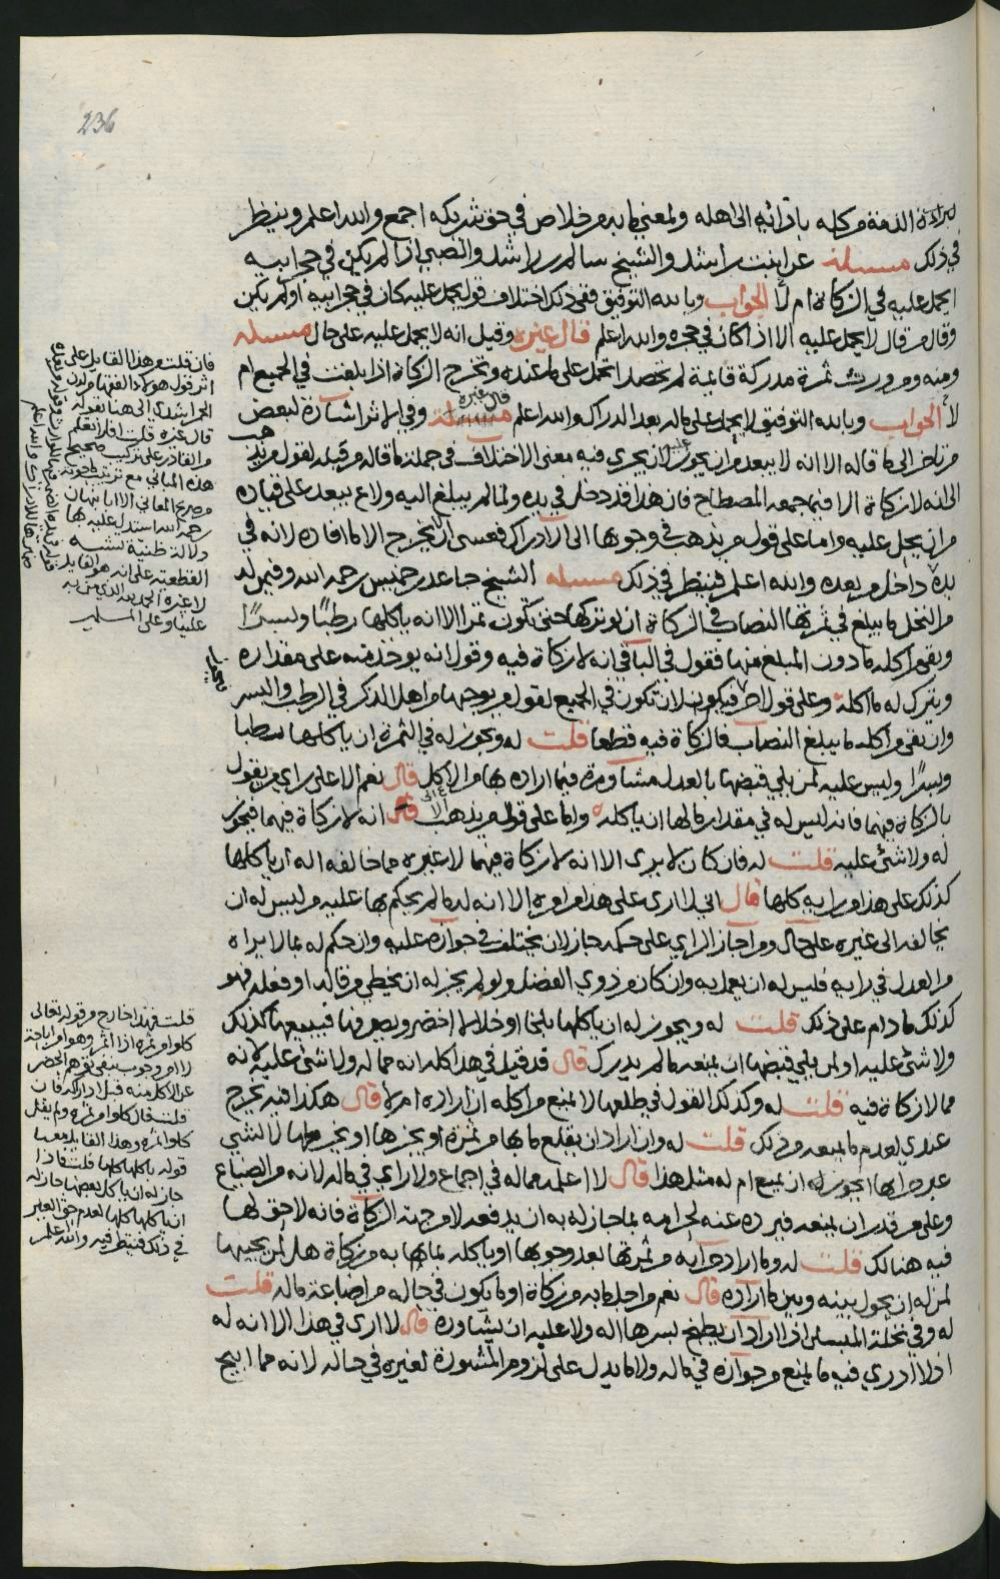 236
لبراءة الذمة من كله بادائه الى اهله ولمعنى ما به من خلاص في حق شريكه اجمع والله اعلم وينظر
في ذلك مسئلة عن ابنت راشد والشيخ سالم بن راشد والصبي اذا لم يكن في حجر ابيه
ايحمل عليه في الزكاة ام لا الجواب وبالله التوفيق ففي ذلك اختلاف قول يحمل عليه كان في حجر ابيه او لم يكن
وقال من قال لا يحمل عليه الا اذا كان في حجره والله اعلم قال غيره وقيل انه لا يحمل عليه على حال مسئلة
ومنه ومن ورث ثمرة مدركة قائمة لم تحصد اتحمل على ما عنده وتخرج الزكاة اذا بلغت في الجميع ام
لا الجواب وبالله التوفيق لا يحمل على ماله بعد الدراك والله اعلم قال غيره وفي الاثر اشارة لبعض
من تاخر الى ما قاله الا انه لا يبعد من ان يجوز عليه لان يجري فيه معنى الاختلاف في جملة ما قاله من قبله لقول من يذهب
الى انه لا زكاة الا فيما جمعه المصطاح فان هذا قد دخل في يده ولما لم يبلغ اليه ولا يبعد على قياده
من ان يحمل عليه واما على قول من يذهب في وجوبها الى الادراك فعسى ان لا يخرج الا ما افاده لانه في
يده داخل من بعده والله اعلم فينظر في ذلك مسئلة الشيخ جاعد بن خميس رحمه الله وفيمن له
من النخل ما يبلغ في ثمرتها النصاب في الزكاة ان لو تركها حتى تكون تمرا الا انه ياكلها رطبًا وبسرًا
وبقي من اكله ما دون المبلغ منها فقول في الباقي انه لا زكاة فيه وقول انه يوخذ منه على مقداره
ويترك له ما اكله وعلى قول اخر فيكون لان تكون في الجميع لقول من يوجبها من اهل الذكر في الرطب والبسر
وان بقي من اكله ما يبلغ النصاب فالزكاة فيه قطعا قلت له ويجوز له في الثمرة ان ياكلها رطبا
وبسرًا وليس عليه لمن يلي قبضها بالعدل مشاورة فيما اراده بها من الاكل قال نعم الا على راي من يقول
بالزكاة فيهما فانه ليس له في مقدار مالها ان ياكله واما على قول من يذهب الى انه لا زكاة فيهما فيجوز
له ولا شئ عليه قلت له فان كان لا يرى الا انه لا زكاة فيهما لا غيره مما خالفه اله ان ياكلها
كذلك على هذا من رايه كلها قال اني لا ارى على هذا من امره الا انه له ما لم يحكم بها عليه من ليس له ان
يخالفه الى غيره على حال ومن اجاز الراي على حكمه جاز لان يختلف في جوازه عليه وان حكم له بما لا يراه
من العدل في رايه فليس له ان يعمل به وان كان من ذوي الفضل ولو لم يجز له ان يخطي من قاله او فعله فهو
كذلك ما دام على ذلك قلت له ويجوز له ان ياكلها بلحا او خلالا اخضر ويصرفها فيبيعها كذلك
ولا شئ عليه او لمن يلي قبضها ان يمنعه ما لم يدرك قال قد قيل في هذا كله انه مما له ولا شئ عليه لانه
مما لا زكاة فيه قلت له وكذلك القول في طلعها لا يمنع من اكله ان اراده ام لا قال هكذا فيه يخرج
عندي لعدم ما يمنعه من ذلك قلت له وان اراد ان يقلع ما بها من ثمرة او يجزها او يخرجها لا لشئ
غير خرابها ايجوز له ان يمنع ام له مثل هذا قال لا اعلمه مما له في اجماع ولا راي في ماله لانه من الضياع
وعلى من قدر ان يمنعه فيرده عنه لحرامه بما جاز له به ان يدفعه لا من جهة الزكاة فانه لا حق لها
فيه هنالك قلت له وما اراد خرابه من ثمرتها بعد وجوبها او ياكله بما بها به من زكاة هل لمن يجبيها
لمن له ان يحول بينه وبين ما اراده قال نعم من اجل ما به من زكاة او ما يكون في حاله من اضاعة ماله قلت
له وفي نخلة المبسلي اذا اراد ان يطبخ بسرها اله ولا عليه ان يشاوره قال لا ارى في هذا الا انه له
اذ لا ادري فيه ما يمنع من جوازه في ماله ولا ما يدل على لزوم المشورة لغيره في حاله لانه مما ابيح
فان قلت من هذا القايل على
اثر قول هولاء الفقهاء
الى هنا بقوله
قال غيره قلت افلا تعلم
من القادر على تركيب صحيح
هذه المباني مع ترتيب
من صريح المعاني الا ابا نبهان
رحمه الله استدل عليه بها
دلالة ظنية لشبه
القطعية على انه هو القايل
لا غيره الحمد لله الذي من به
علينا وعلى المسلمين
قلت فهذا خارج من قول الله تعالى
كلوا من ثمره اذا اثمر وهو امر اباحة
لا امر وجوب ينفي توهم الحضر
عن الاكل منه قبل ادراكه فان
قلت قال كلوا من ثمره ولم يقل
كلوا ثمره وهذا القايل معه
قوله ياكلها كلها قلت فاذا
جاز له ان ياكل بعضها جاز له
ان ياكلها كلها لعدم حق الغير
في ذلك فينظر فيه والله اعلم